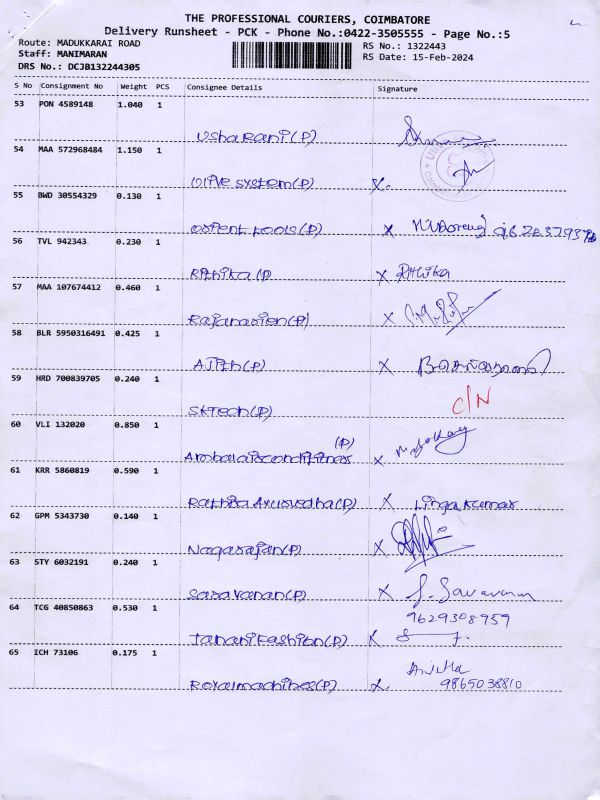 THE PROFESSIONAL COURIERS, COIMBATORE
Delivery Runsheet - PCK - Phone No.:0422-3505555 - Page No.:5
Route: MADUKKARAI ROAD
RS No.: 1322443
Staff: MANIMARAN
RS Date: 15-Feb-2024
DRS No.: DCJB132244305
S No Consignment No Weight PCS Consignee Details Signature
53 PON 4589148 1.040 1
Usharani(P)
54 MAA 572968484 1.150 1
Olive system(P) x.
55 BWD 30554329 0.130 1
Orient tools(P) x
56 TVL 942343 0.230 1
Rithika(P) x Rithika
57 MAA 107674412 0.460 1
Rajanarien(P) x
58 BLR 5950316491 0.425 1
AJith(P) x
59 HRD 700839705 0.240 1
C/N
SKTech(P)
60 VLI 132020 0.850 1
(P)
x
61 KRR 5860819 0.590 1
Rathna Ayurvedha(P) x Lingakumar
62 GPM 5343730 0.140 1
Nagarajan(P) x
63 STY 6032191 0.240 1
Saravanan(P) x S. Saravanan
64 TCG 40850863 0.530 1
9629308959
Janani Fashion(P) x
65 ICH 73106 0.175 1
Royalmachines(P) x. 9865038810